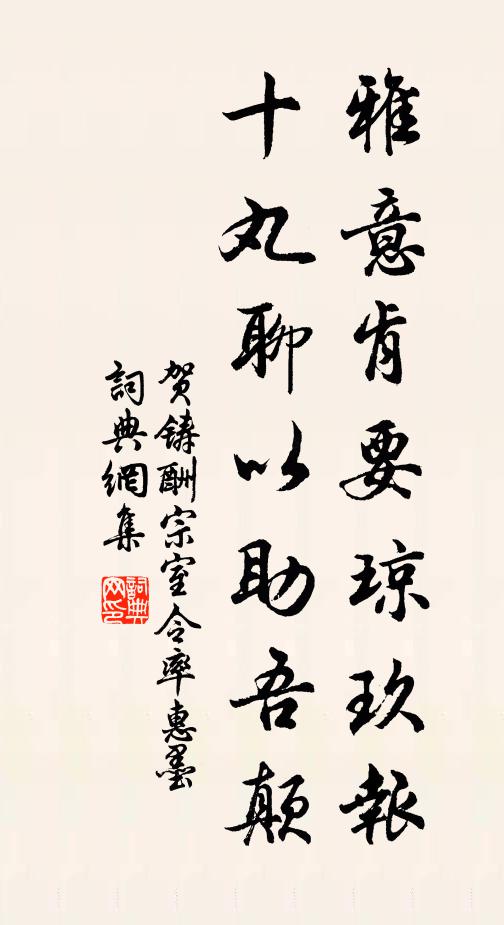 雅意肯要琼玖報
十丸聊以助吾顛
贺鋳酬宗室令率惠墨
詞典網集
詞典網印